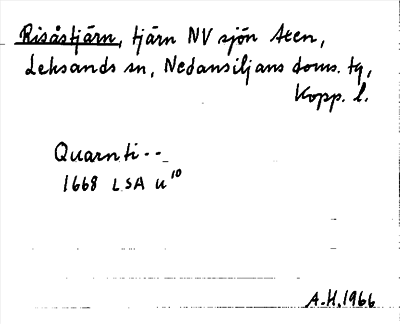 Risåstjärn, tjärn NV sjön Aten,
Leksands sn, Nedansiljans doms. tg,
Kopp. l.
Quarnti--
1668 LSA u10
A.H. 1966